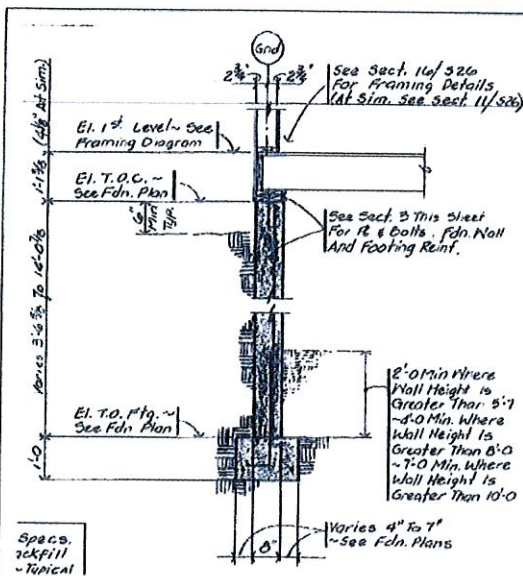 Grid
2 3/4" 2 3/4"
See Sect. 16/S26
For Framing Details
(At Sim. See Sect. 11/S26)
El. 1st Level ~ See
Framing Diagram
El. T.O.C. ~
See Fdn. Plan
6"
Min
Typ.
(4 1/8" At Sim.)
See Sect. 3 This Sheet
For PL & Bolts, Fdn. Wall
And Footing Reinf.
El. T.O. Ftg. ~
See Fdn Plan
1'-0
2'-0 Min Where
Wall Height is
Greater Than 5'-7
~4'-0 Min. Where
Wall Height is
Greater Than 8'-0
~7'-0 Min. Where
Wall Height is
Greater Than 10'-0
8"
Varies 4" To 7"
~See Fdn. Plans
Specs.
ackfill
~Typical